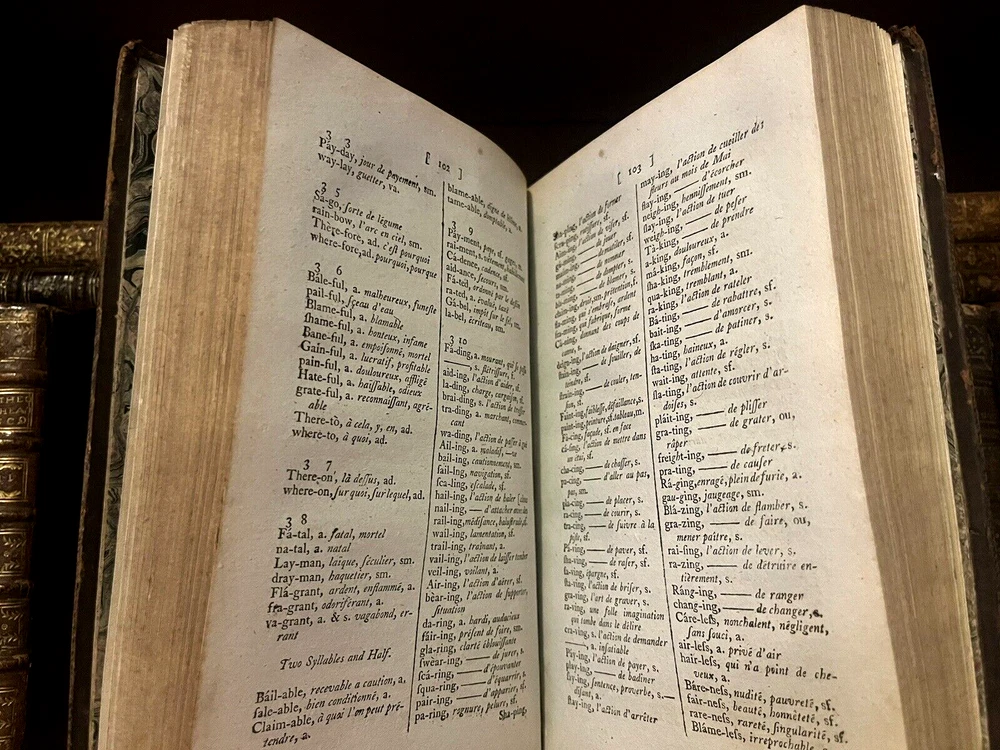 [ 102 ]
3 3
Pāy-day, jour de payement, sm.
way-lay, guetter, va.
3 5
Sā-go, ſorte de légume
rain-bow, l'arc en ciel, sm.
Thēre-fore, ad. c'eſt pourquoi
where-fore, ad. pourquoi, pourque
3 6
Bāle-ful, a. malheureux, funeſte
pail-ful, ſçeau d'eau
Blame-ful, a. blamable
ſhame-ful, a. honteux, infame
Bane-ful, a. empoiſonné, mortel
Gain-ful, a. lucratif, profitable
pain-ful, a. douloureux, affligé
Hate-ful, a. haïſſable, odieux
grate-ful, a. reconnaiſſant, agré-
able
There-tō, à cela, y, en, ad.
where-to, à quoi, ad.
3 7
There-on, là deſſus, ad.
where-on, ſur quoi, ſur lequel, ad.
3 8
Fā-tal, a. fatal, mortel
na-tal, a. natal
Lay-man, laïque, ſéculier, sm.
dray-man, haquetier, sm.
Flā-grant, ardent, enflammé, a.
fra-grant, odoriférant, a.
va-grant, a. & s. vagabond, er-
rant
Two Syllables and Half.
Bāil-able, recevable a caution, a.
ſale-able, bien conditionné, a.
Claim-able, à quoi l'on peut pré-
tendre, a.
blame-able, digne de blâme, a.
tame-able, domptable, a.
3 9
Pāy-ment, paye, sf.
rai-ment, s. vêtement,
Cā-dence, cadence, sf.
aid-ance, ſecours, sm.
Fā-ted, ordonné par le deſtin
ra-ted, a. évalué
Gā-bel, impôt ſur le ſel, sm.
la-bel, écriteau, sm.
3 10
Fā-ding, a. mourant,
——, s. flétriſſure,
aid-ing, l'action d'aider, sf.
la-ding, charge, cargaiſon, sf.
brai-ding, s. l'action de treſſer
tra-ding, a. marchand, commer-
cant
wa-ding, l'action de paſſer à gué
Ail-ing, a. maladif,
bail-ing, cautionnement, sm.
ſail-ing, navigation, sf.
ſca-ling, eſcalade, sf.
hail-ing, l'action de haler
nail-ing, —— d'attacher avec des
rail-ing, médiſance, baluſtrade, sf.
wail-ing, lamentation, sf.
trail-ing, traînant, a.
vail-ing, l'action de laiſſer tomber
veil-ing, voilant, a.
Air-ing, l'action d'aërer, sf.
bèar-ing, l'action de ſupporter,
ſituation
da-ring, a. hardi, audacieux
fāir-ing, préſent de foire, sm.
gla-ring, clarté éblouiſſante
ſwèar-ing, —— de jurer, s.
ſcā-ring, —— d'épouvanter
ſqua-ring, —— d'équarrir, s.
pair-ing, —— d'apparier, sf.
pa-ring, rognure, pelure, sf.
Sha-ping,
[ 103 ]
l'action de former
—— de jouer
—— de nommer
—— de dompter, s.
l'action de daigner, sf.
—— de ſouiller, de
teindre, sf.
—— de couler, ten-
Faint-ing, foibleſſe, défaillance, s.
paint-ing, peinture, sf. tableau, m.
Fā-cing, façade, sf. en face
ca-ſing, l'action de mettre dans
un étui, sf.
cha-cing, —— de chaſſer, s.
pa-cing, —— d'aller au pas,
pas, sm.
pla-cing, —— de placer, s.
ra-cing, —— de courir, s.
tra-cing, —— de ſuivre à la
piſte, sf.
Pā-ving, —— de paver, sf.
ſha-ving, —— de raſer, sf.
ſa-ving, épargne, sf.
ſta-ving, l'action de briſer, s.
gra-ving, l'art de graver, s.
ra-ving, une folle imagination
qui tombe dans le délire
cra-ving, s. l'action de demander
——, a. inſatiable
Pāy-ing, l'action de payer, s.
play-ing, —— de badiner
ſay-ing, ſentence, proverbe, s. ——
diſant, a.
ſtay-ing, l'action d'arrêter
may-ing, l'action de cueillir des
fleurs au mois de Mai
flay-ing, —— d'écorcher
neigh-ing, henniſſement, sm.
ſlay-ing, l'action de tuer
weigh-ing, —— de peſer
Tā-king, —— de prendre
a-king, douloureux, a.
mā-king, façon, sf.
qua-king, tremblement, sm.
qua-king, tremblant, a.
ra-king, l'action de rateler
Bā-ting, —— de rabatre, sf.
bait-ing, —— d'amorcer, s.
ſka-ting, —— de patiner, s.
ha-ting, haineux, a.
ſta-ting, l'action de régler, s.
wait-ing, attente, sf.
ſla-ting, l'action de couvrir d'ar-
doiſes, s.
plāit-ing, —— de pliſſer
gra-ting, —— de grater, ou,
râper
freight-ing, —— de freter, s.
pra-ting, —— de cauſer
Rā-ging, enragé, plein de furie, a.
gau-ging, jaugeage, sm.
Blā-zing, l'action de flamber, s.
gra-zing, —— de faire, ou,
mener paître, s.
rai-ſing, l'action de lever, s.
ra-zing, —— de détruire en-
tièrement, s.
Rāng-ing, —— de ranger
chang-ing, —— de changer, s.
Cāre-leſs, nonchalent, négligent,
ſans ſouci, a.
air-leſs, a. privé d'air
hair-leſs, qui n'a point de che-
veux, a.
Bāre-neſs, nudité, pauvreté, sf.
fair-neſs, beauté, honnêteté, sf.
rare-neſs, rareté, ſingularité, sf.
Blāme-leſs, irreprochable